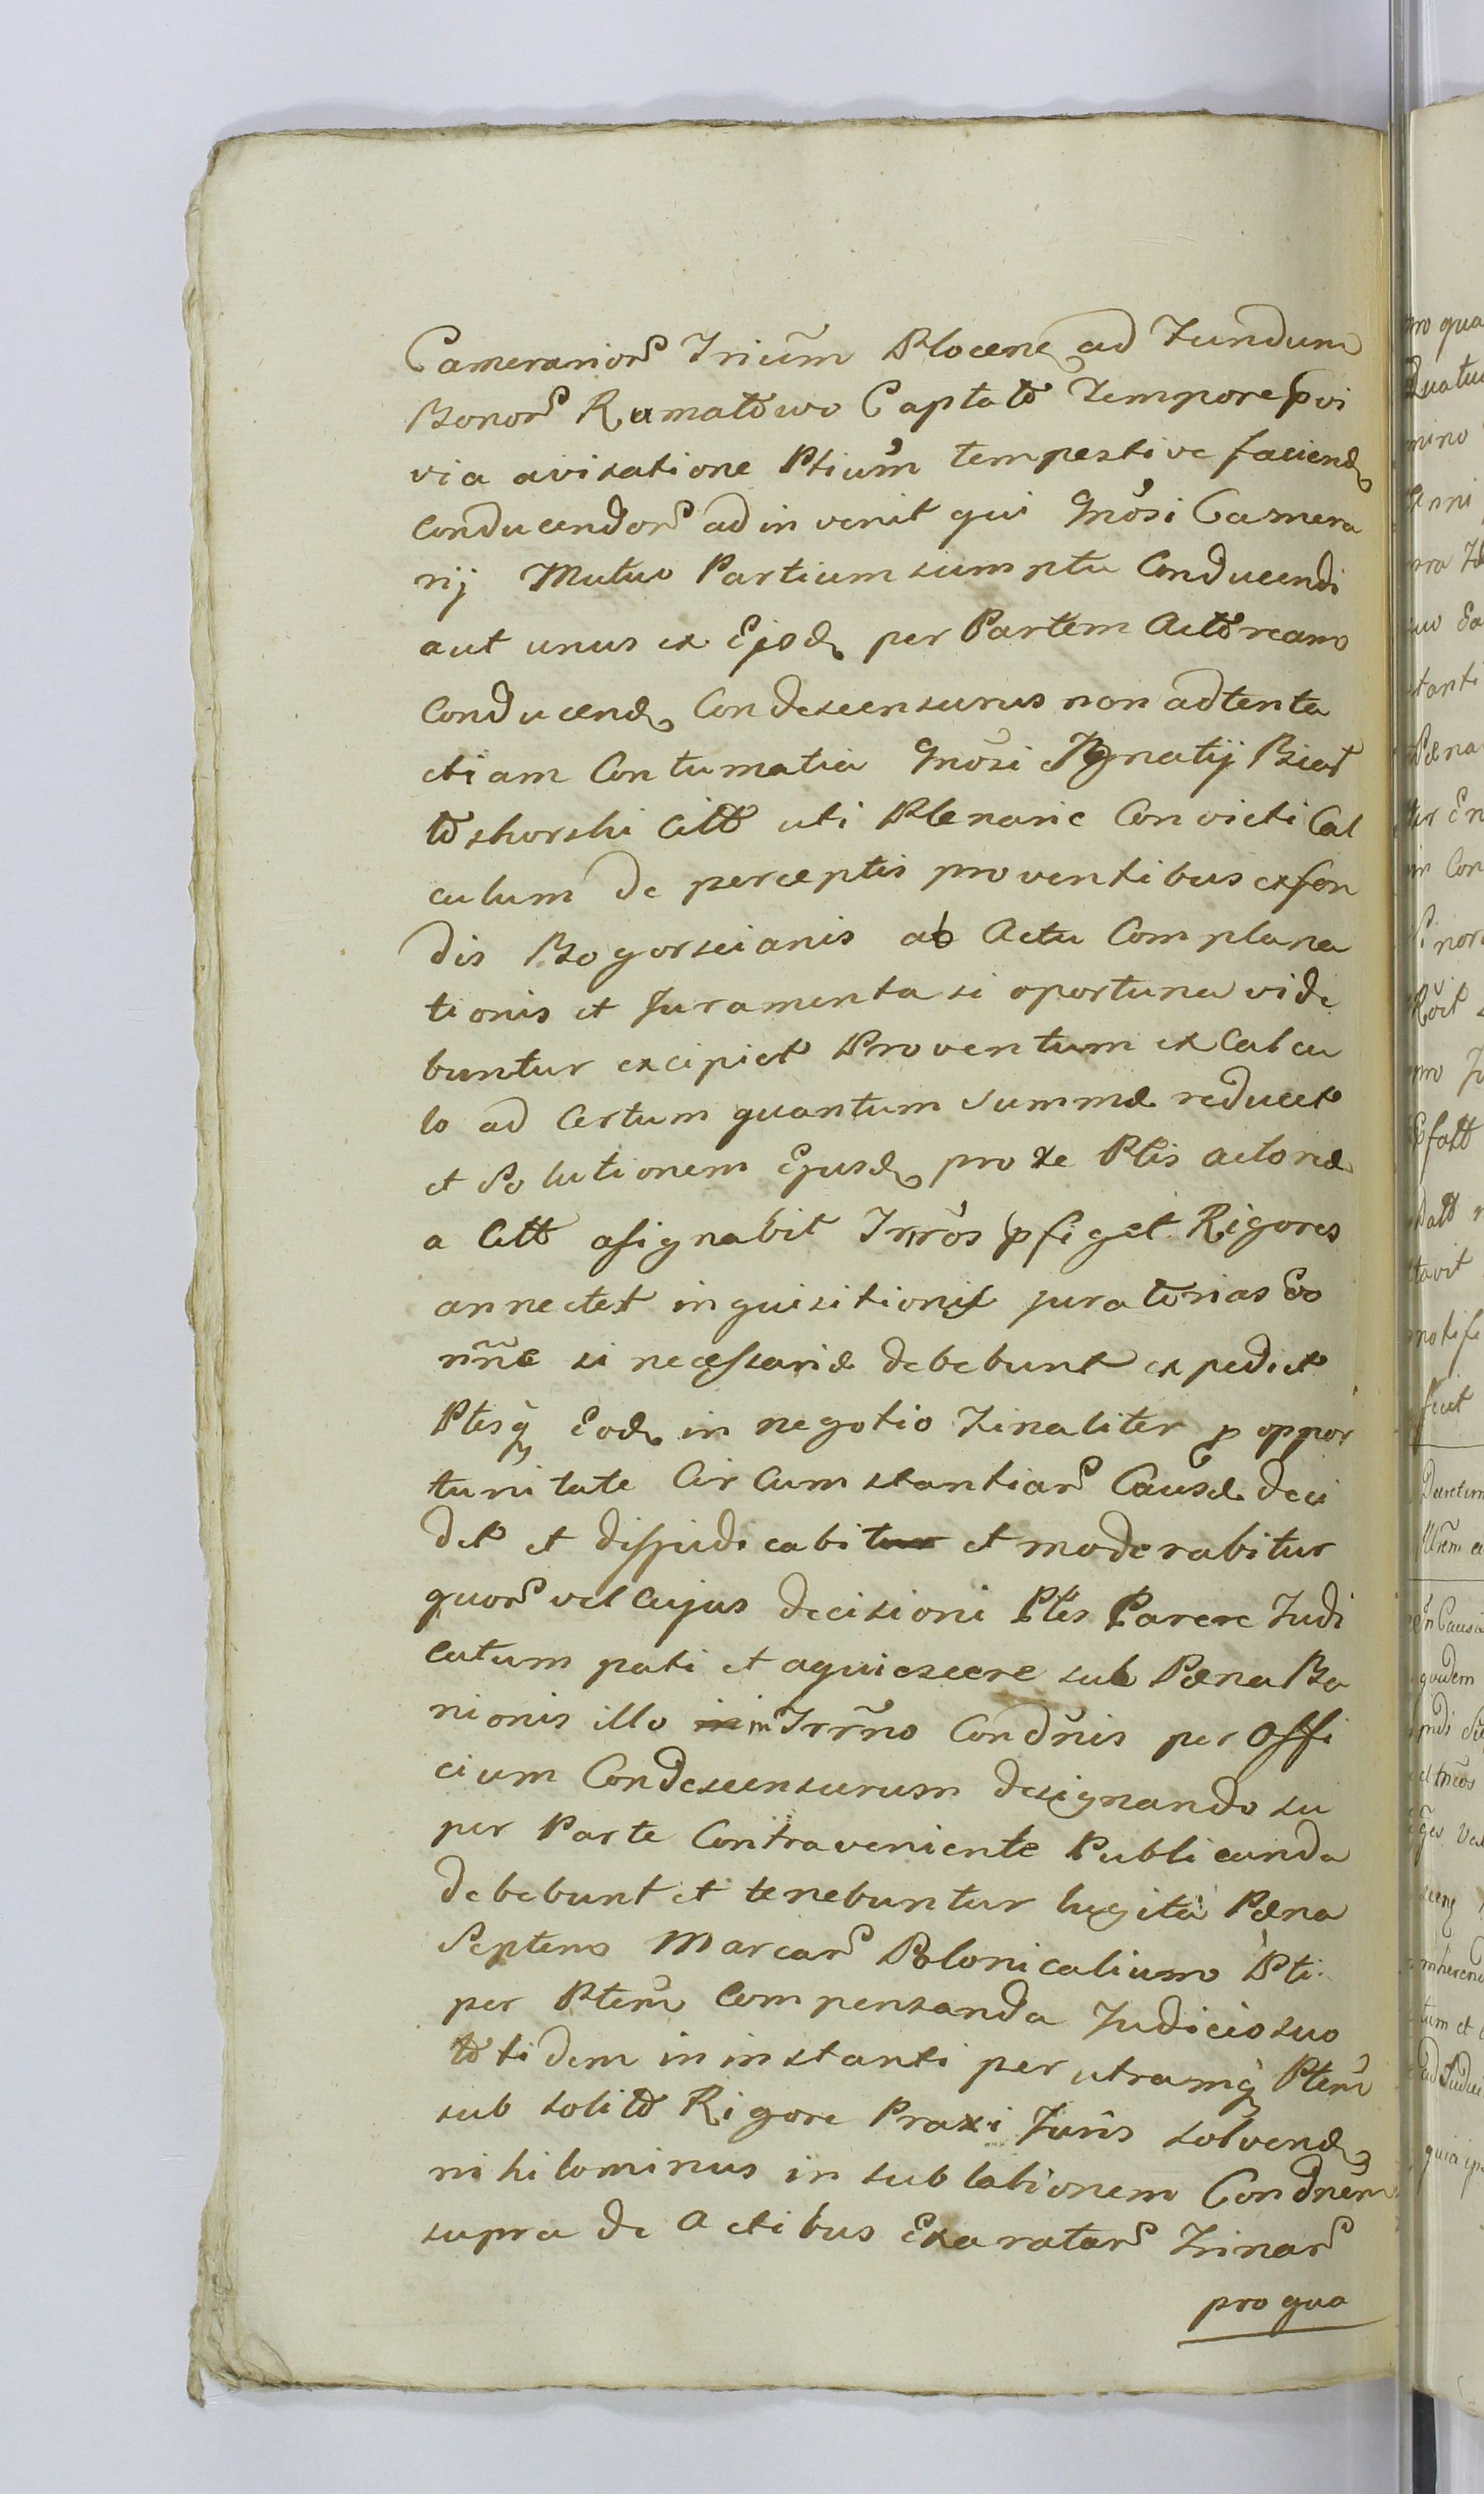 Camerarior͂ Trium̃ Plocen ad Fundum
Bonor͂ Rumatowo Captato Tempore prvi
via avisatione Ptium̃ tempestive faciend
Conducendor͂ adinvenit qui Gnõsi Camera
rij Mutuo Partium sumptu Conducendi
aut unus ex Ejsd per Partem Actoream
Conducend Condescensurus non adtenta
etiam Contumatia Gnõsi Ignatij Biał
toskorski Citt uti Plenarie Convicti Cal
culum de perceptis proventibus ex fon
dis Bogorscianis ab Actu Complana
tionis et Juramenta si oportuna vide
buntur excipiet Proventum ex Calcu
lo ad Certum quantum Summæ reducet
et Solutionem Ejusd pro re Ptis actoræ
a Citt assignabit Trr͂os pfiget Rigores
annectet inquisitiones juratorias Eo
nñe si necessariæ debebunt expediet
Ptesq Eod in negotio Finaliter p oppor
tunitate Circumstantiar͂ Causæ deci
det et dijudicabit et moderabitur
quor͂ vel Cujus decisioni Ptes Parere Judi
catum pati et aquiescere sub Pæna Ba
nionis illo in Trr͂no Condñis per Offi
cium Condescensurum designando su
per Parte Contraveniente Publicanda
debebunt et tenebuntur lugita Pæna
Septem Marcar͂ Polonicalium Pti
per Ptem̃ Compensanda Judicio suo
totidem in instanti per utramq Ptem̃
sub solito Rigore Praxi Juris solvend
nihilominus in sublationem Condnem̃
supra de Actibus Exaratar͂ Trinar͂
pro qua